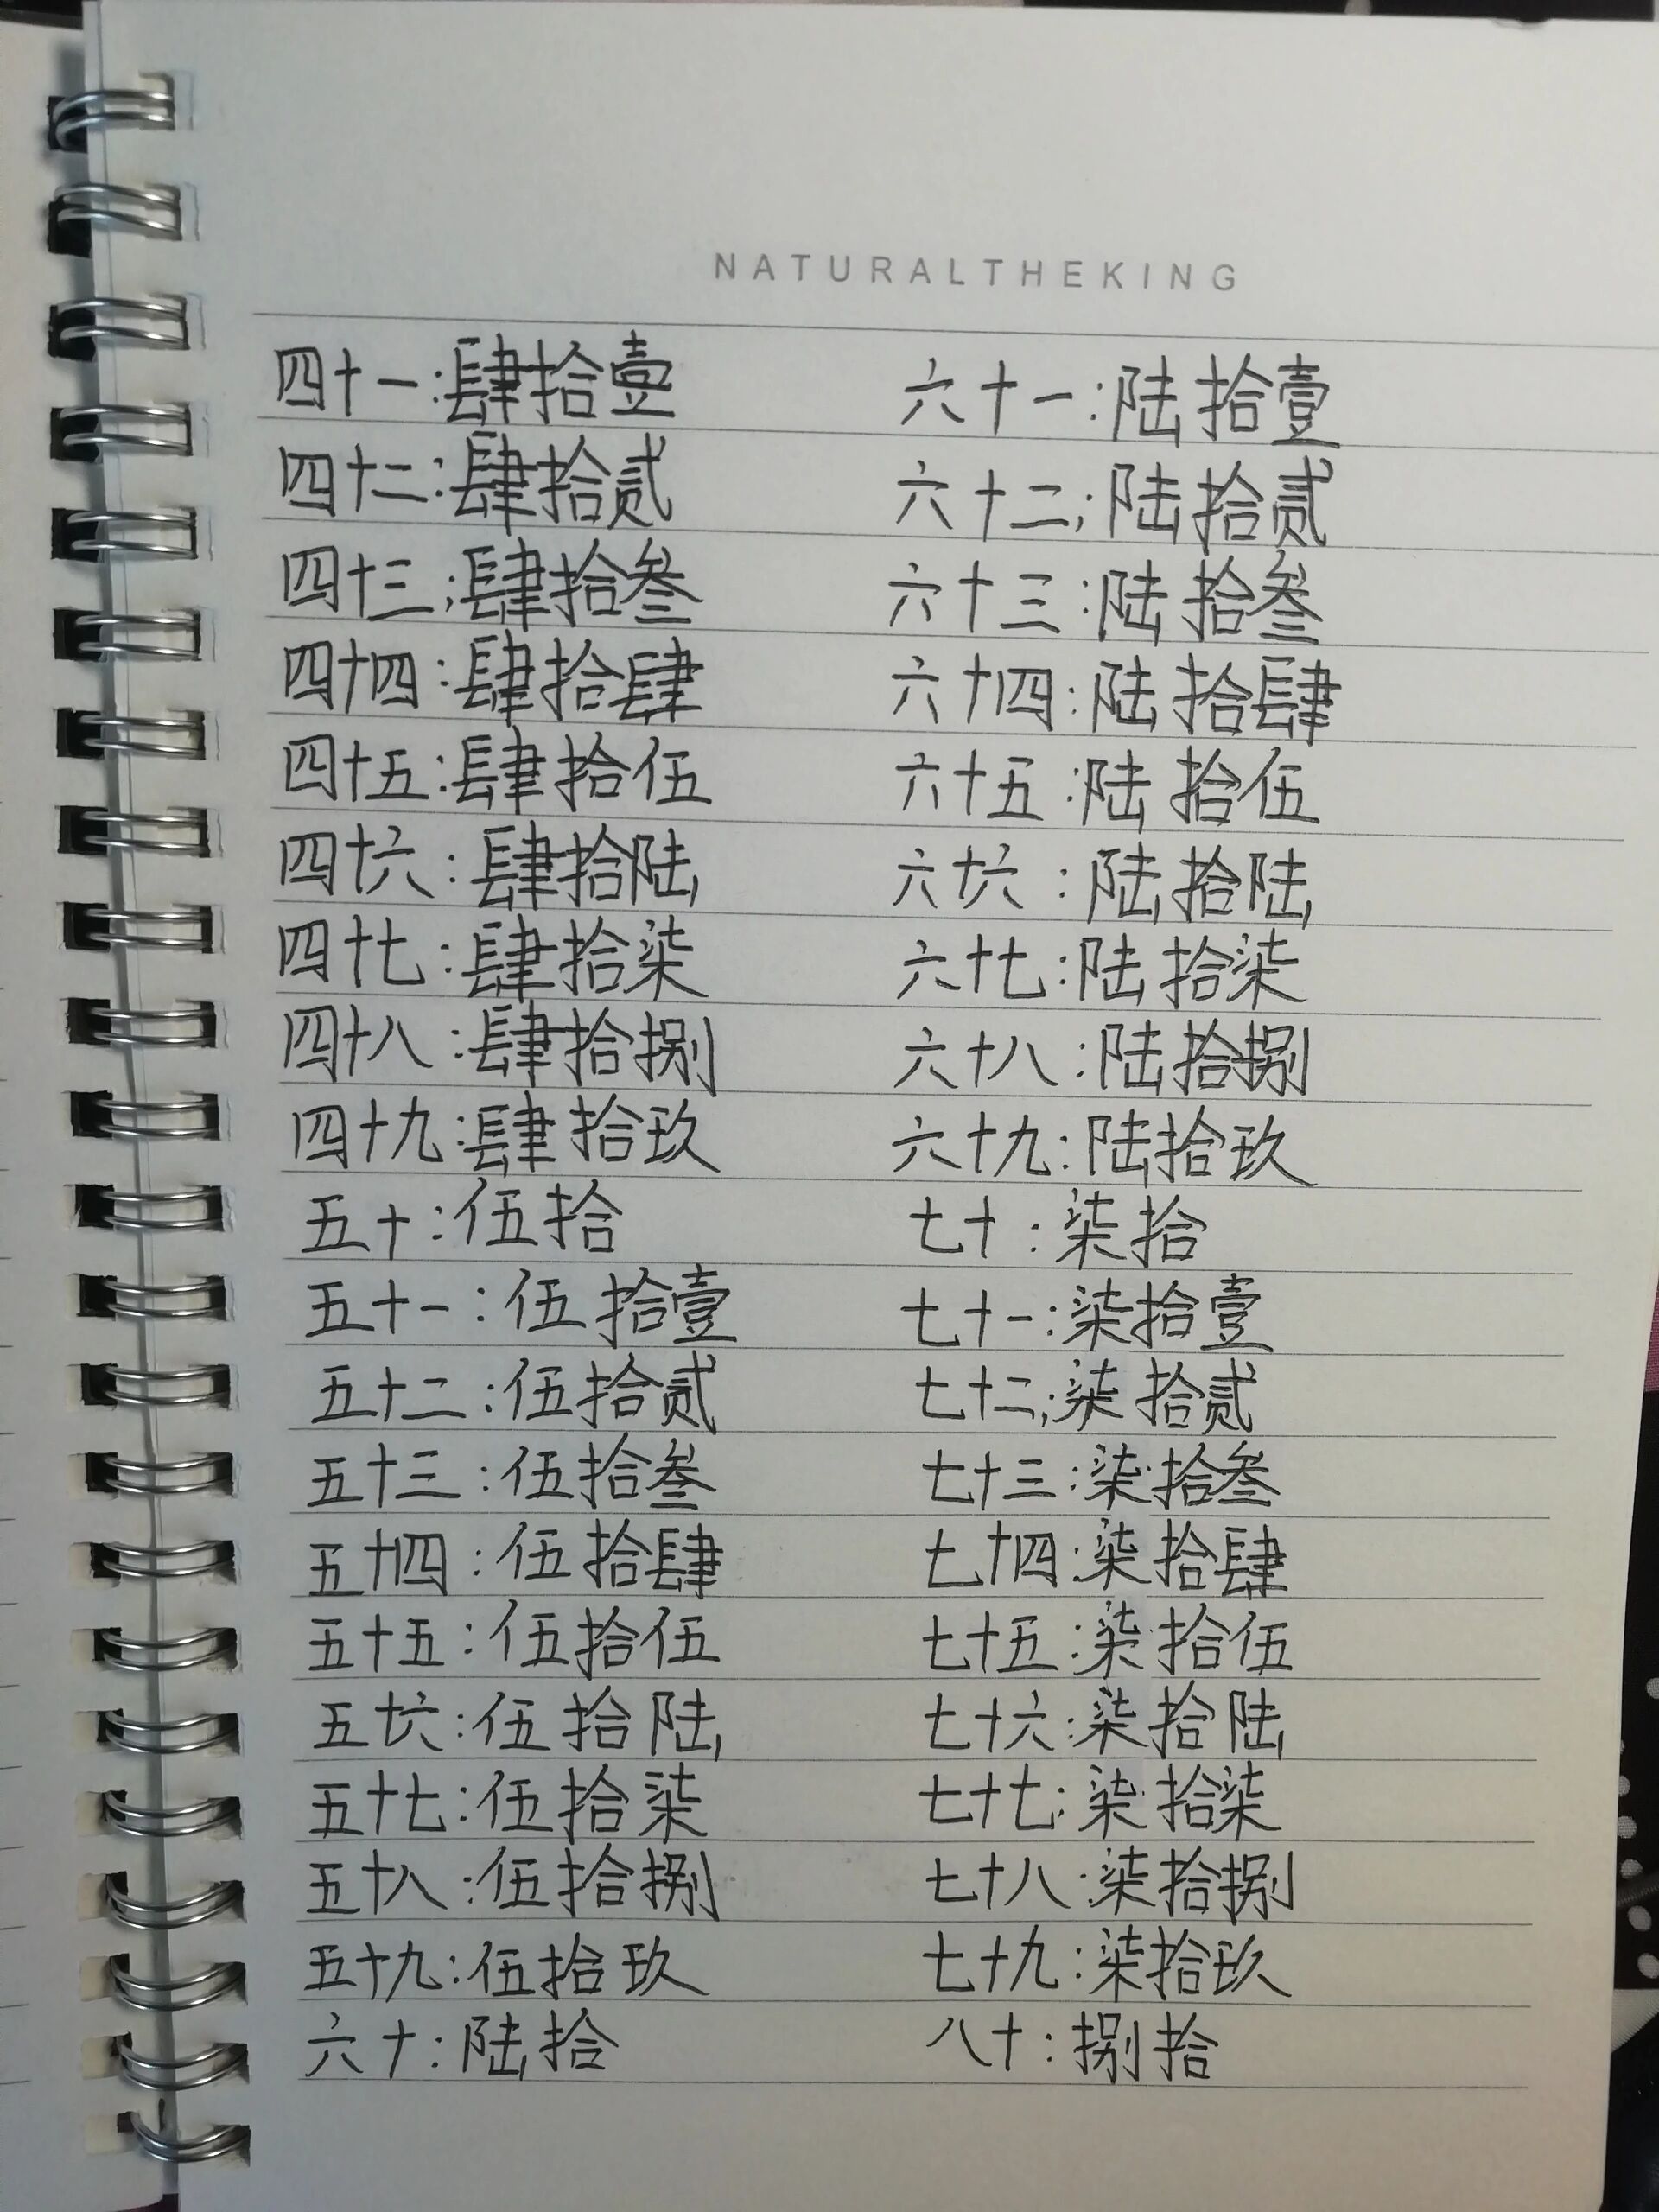 NATURALTHEKING
四十一:肆拾壹
四十二:肆拾贰
四十三;肆拾叁
四十四:肆拾肆
四十五:肆拾伍
四十六:肆拾陆
四十七:肆拾柒
四十八:肆拾捌
四十九:肆拾玖
五十:伍拾
五十一:伍拾壹
五十二:伍拾贰
五十三:伍拾叁
五十四:伍拾肆
五十五:伍拾伍
五十六:伍拾陆
五十七:伍拾柒
五十八:伍拾捌
五十九:伍拾玖
六十:陆拾
六十一:陆拾壹
六十二;陆拾贰
六十三:陆拾叁
六十四:陆拾肆
六十五:陆拾伍
六十六:陆拾陆
六十七:陆拾柒
六十八:陆拾捌
六十九:陆拾玖
七十:柒拾
七十一:柒拾壹
七十二;柒拾贰
七十三:柒拾叁
七十四:柒拾肆
七十五:柒拾伍
七十六:柒拾陆
七十七:柒拾柒
七十八:柒拾捌
七十九:柒拾玖
八十:捌拾